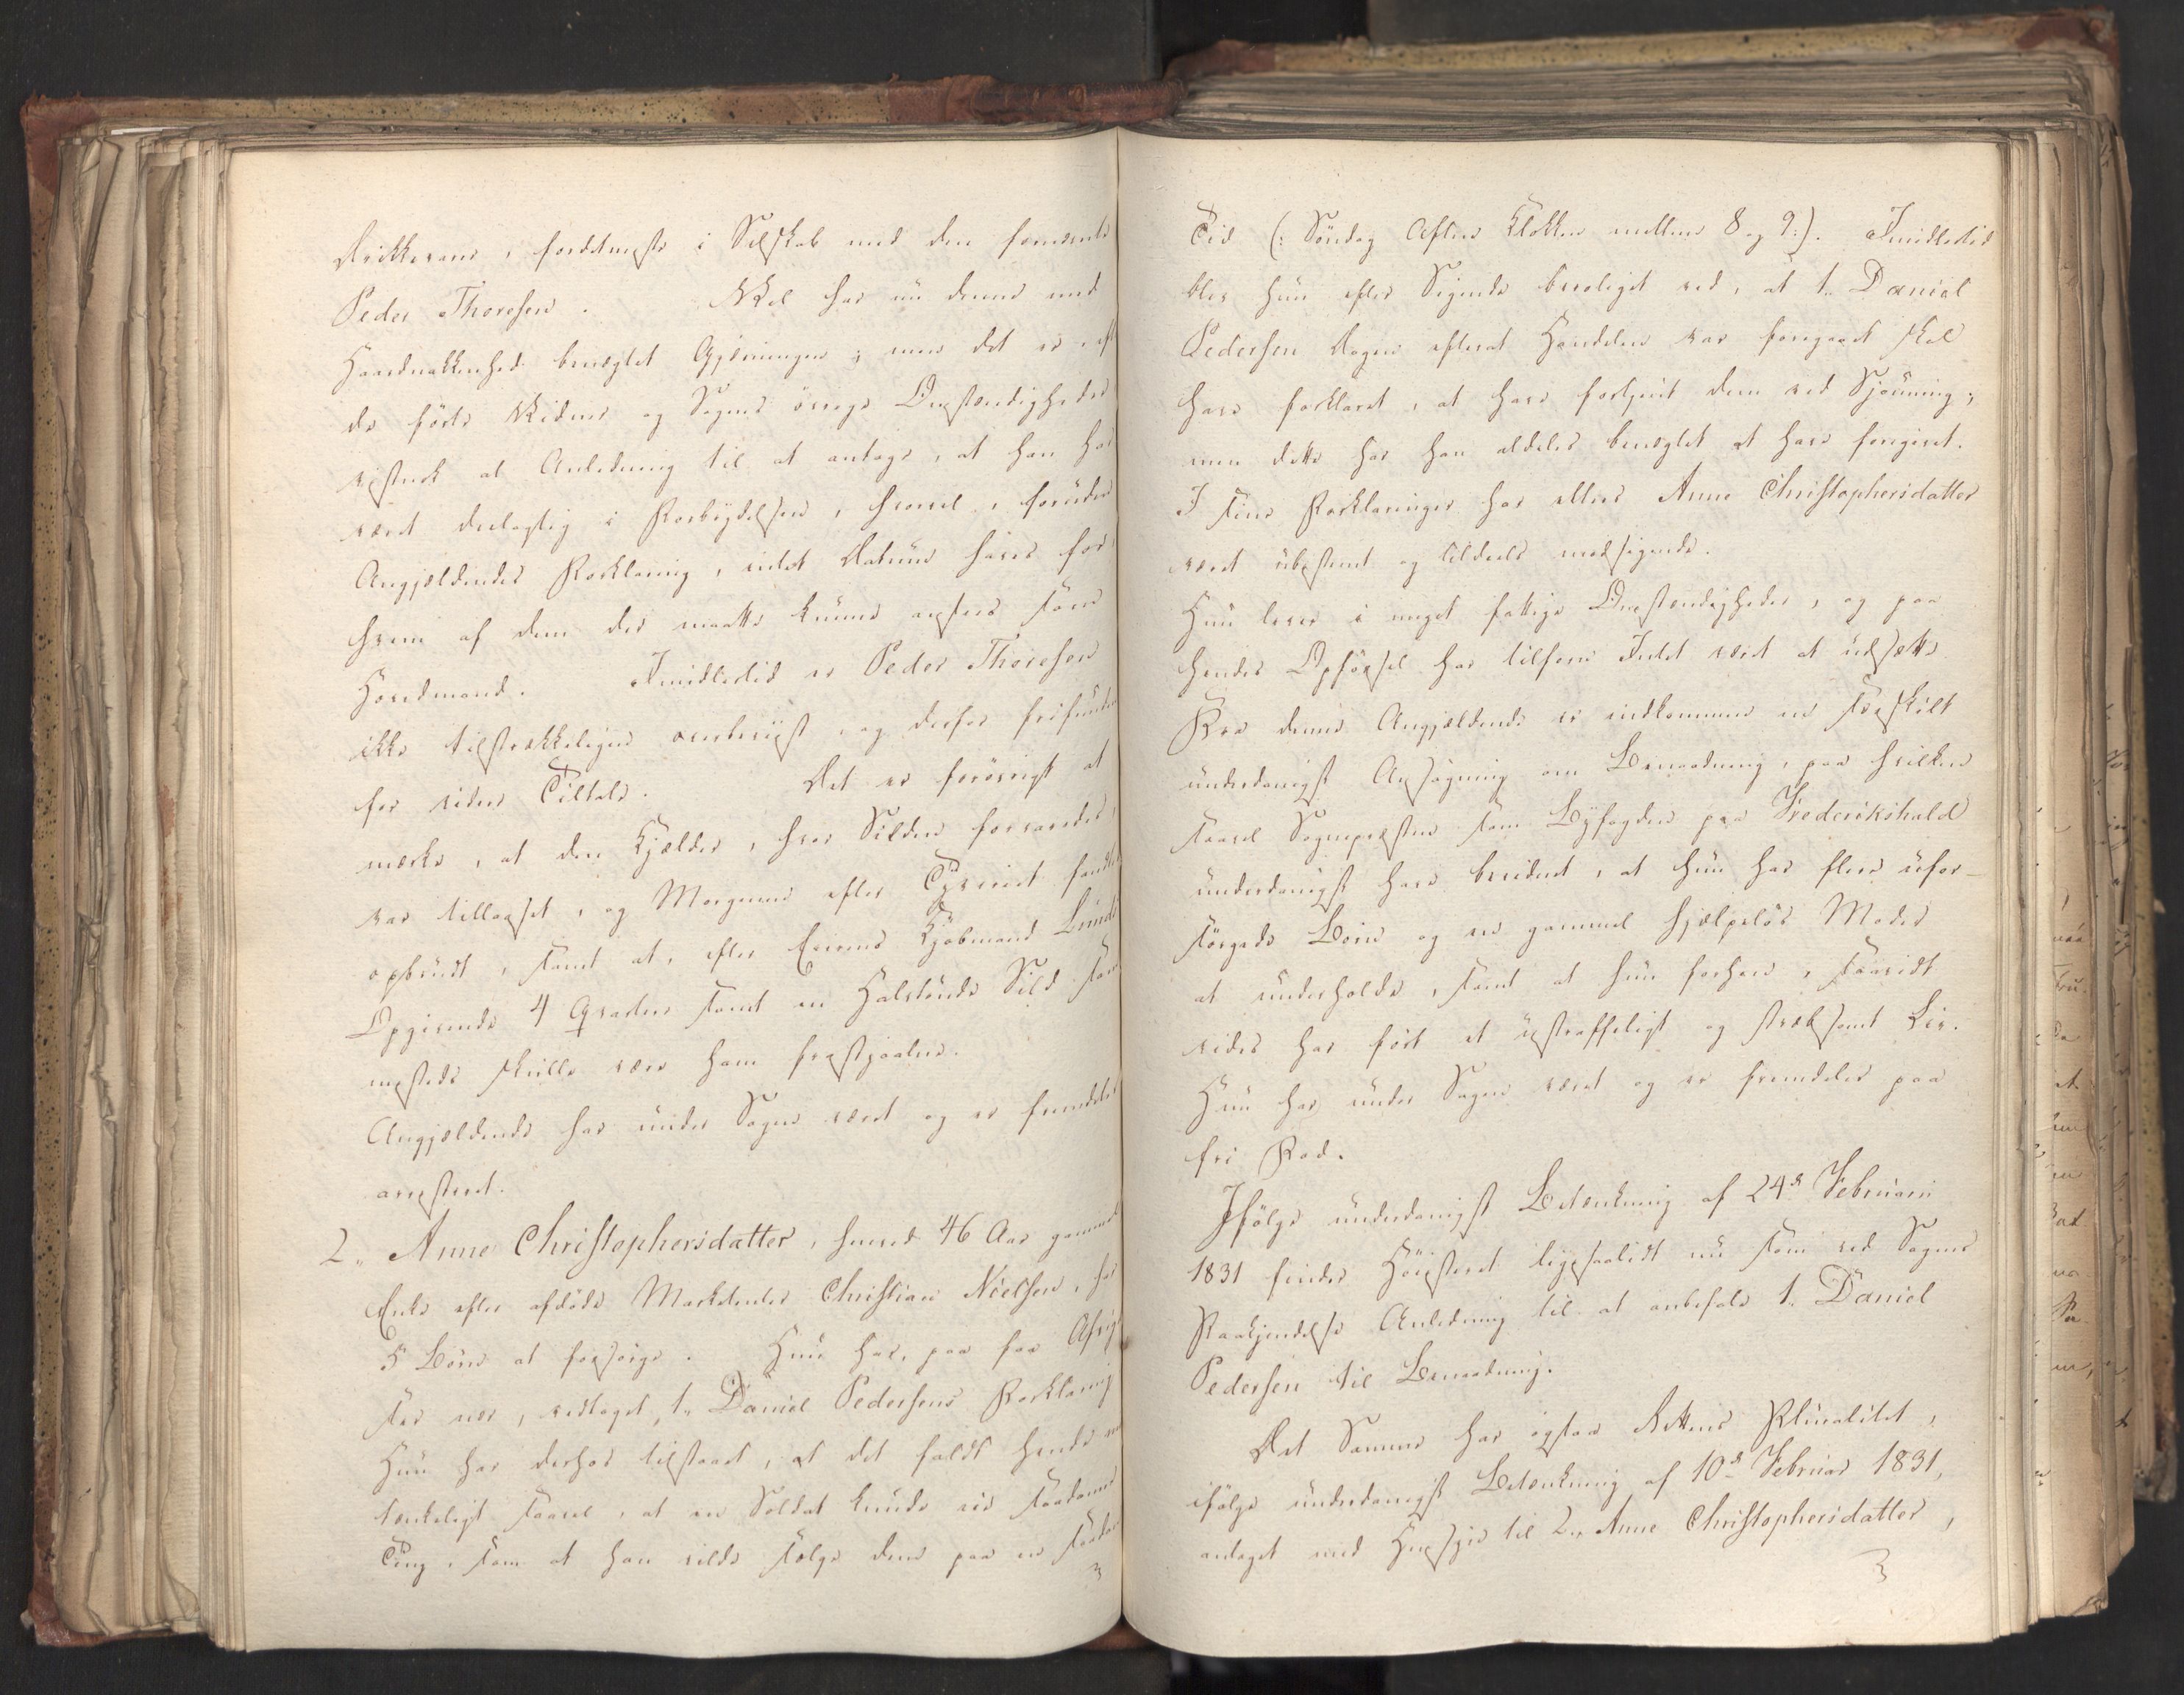 drikkevare, fordetmeste i Selskab med den fornævnte
Peder Thoresen. Vel har nu denne med
Haardnakkenhed benægtet Gjerningen; men det er, ef
de førte Vidner og Sagens øvrige Omstændigheder
vistnok al Anledning til at antage, at han har
været deelagtig i Forbrydelsen, hvorvel, foruden
Angjældendes Forklaring, intet Datum haves for,
hvem af dem der maatte kunne ansees som
Hovedmand. Imidlertid er Peder Thoresen
ikke tilstrækkeligen overbeviist, og derfor frifunden
for videre Tiltale. Det er forøvrigt at
mærke, at den Kjælder, hvor Silden forvaredes,
var tillaaset, og Morgenen efter Tyveriet fandtes
opbrudt, samt at, efter Eierens Kjøbmand Lunds
Opgivende 4 Qvarter samt en Halvtønde Sild som
mestede skulle være ham frastjaalen.
Angjældende har under Sagen været og er fremdeles
arresteret.
2., Anne Christophersdatter, henved 46 Aar gammel
Enke efter afdøde Marketenter Christian Nielsen, har
5 Børn at forsørge. Hun har, paa faa Afvig
ser nær, vedtaget 1., Daniel Pedersens Forklaring
Hun har derhos tilstaaet, at det faldt hende
tænkeligt saavel, at en Soldat kunde eie saadanne
Ting, som at han vilde sælge dem paa en saadan
Tid (: Søndag Aften Klokken mellem 8 og 9:). Imidlertid
blev hun efter Sigende beroliget ved, at 1., Daniel
Pedersen Dagen efterat Handelen var foregaaet skal
have forklaret, at have fortjent dem ved Sjouning;
men dette har han aldeles benægtet at have foregivet.
I sine Forklaringer har ellers Anne Christophersdatter
været ubestemt og tildeels modsigende.
Hun lever i meget fattige Omstændigheder, og paa
hendes Opførsel har tilforn Intet været at udsætte.
Fra denne Angjældende er indkommen en særskilt
underdanigst Ansøgning om Benaadning, paa hvilken
saavel Sognepræsten som Byfogden paa Frederikshald
underdanigst have bevidnet, at hun har flere ufor-
sørgede Børn og en gammel hjælpeløs Moder
at underholde, samt at hun forhen, saavidt
vides har ført et ustraffeligt og stræbsomt Lev.
Hun har under Sagen været og er fremdeles paa
fri Fod.
Ifølge underdanigst Betænkning af 24de Februari
1831 finder Høiesteret ligesaalidt nu som ved Sagens
Paakjendelse Anledning til at anbefale 1., Daniel
Pedersen til Benaadning.
Det Samme har ogsaa Rettens Pluralitet,
ifølge underdanigst Betænkning af 10de Februar 1831,
antaget med Hensyn til 2., Anne Christophersdatter,